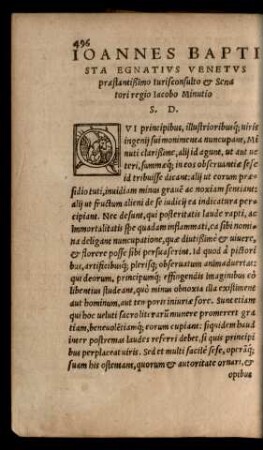 496
IOANNES BAPTI
STA EGNATIVS VENETVS
præstantißimo Iurisconsulto & Sena
tori regio Iacobo Minutio
S. D.
QVI principibus, illustrioribusq; uiris
ingenij sui monimenta nuncupant, Mi
nuti clarißime, alij id agunt, ut aut ue
teri, summæq; in eos obseruantiæ se se
id tribuisse dicant: alij ut eorum præ-
sidio tuti, inuidiam minus grauē ac noxiam sentiant:
alij ut fructum alieni de se iudicij ea indicatura per-
cipiant. Nec desunt, qui posteritatis laude rapti, ac
Immortalitatis spe quadam inflammati, ea sibi nomi-
na deligant nuncupatione, quæ diutißime & uiuere,
& florere posse sibi persuaserint. Id quod à pictori
bus, artificibusq; plerisq; obseruatum animaduertas:
qui deorum, principumq; effingendis imaginibus eò
libentius student, quò minus obnoxia illa existiment
aut hominum, aut temporis iniuriæ fore. Sunt etiam
qui hoc ueluti sacro literarū munere promereri gra
tiam, beneuolētiamq; eorum cupiant: siquidem haud
inter postremas laudes referri debet, si quis principi
bus perplaceat uiris. Sed et multi facilè sese, operāq;
suam his ostentant, quorum & autoritate ornari, &
opibus